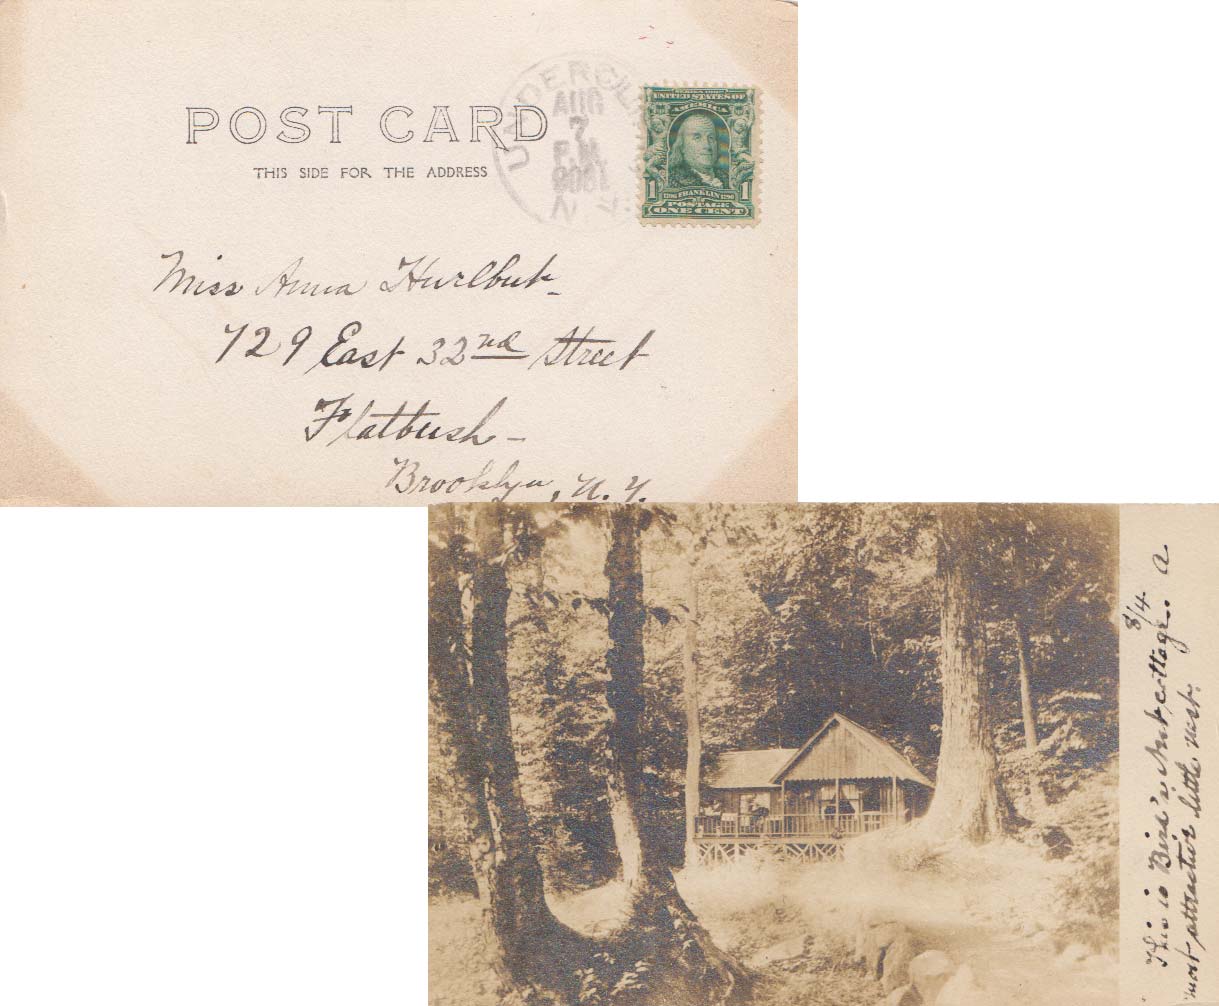 POST CARD
THIS SIDE FOR THE ADDRESS
UNDERCL
AUG
7
P.M.
N. Y.
SERIES 1902
UNITED STATES OF
AMERICA
1 1
1706 FRANKLIN 1790
POSTAGE
ONE CENT
Miss Anna Hurlbut-
729 East 32nd Street
Flatbush-
Brooklyn, N. Y.
8/4
This is Bird's Nest, cottage. a
most attractive little nest.